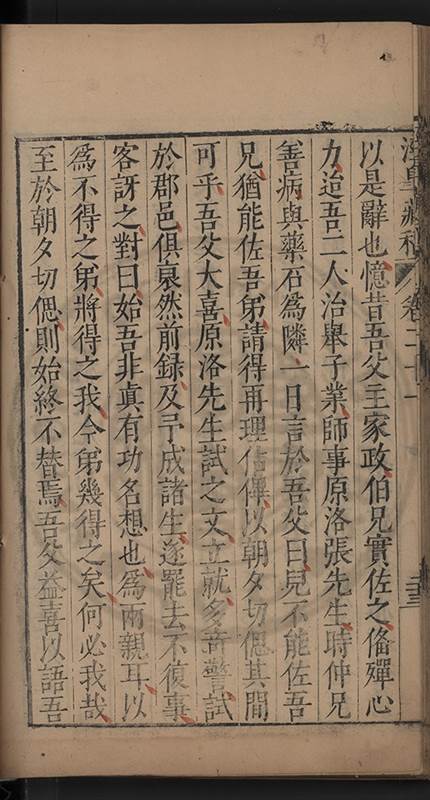 以是辭也憶昔吾父主家政伯兄實佐之俻殫心
力迨吾二人治舉子業師事原洛張先生時仲兄
善病與藥石爲隣一日言於吾父曰兒不能佐吾
兄猶能佐吾弟請得再理佔俾以朝夕切偲其間
可乎吾父大喜原洛先生試之文立就多奇警試
於郡邑俱裒然前録及予成諸生遂罷去不復事
客訝之對曰始吾非眞有功名想也爲兩親耳以
爲不得之弟將得之我今弟幾得之矣何必我哉
至於朝夕切偲則始終不替焉吾父益喜以語吾
涇臯藏稿
卷二十一